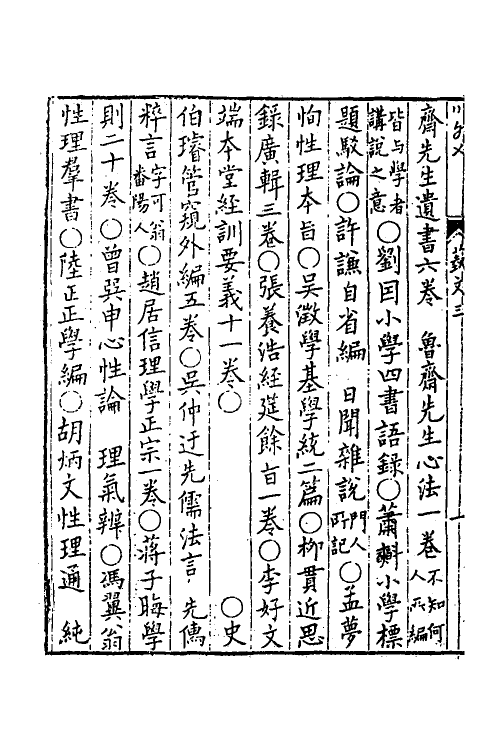 齋先生遺書六卷　魯齋先生心法一卷不知何人所編
皆与學者講說之意〇劉因小學四書語錄〇蕭𣂏小學標
題駁論〇許謙自省編　日聞雜說門人所記〇孟夢
恂性理本旨〇吳澂學基學統二篇〇柳貫近思
錄廣輯三卷〇張養浩經筵餘旨一卷〇李好文
端本堂經訓要義十一卷〇　〇史
伯璿管窺外編五卷〇吳仲迂先儒法言　先儒
粹言字可翁番陽人〇趙居信理學正宗一卷〇蔣子晦學
則二十卷〇曾巽申心性論　理氣辨〇馮翼翁
性理羣書〇陸正正學編〇胡炳文性理通　純